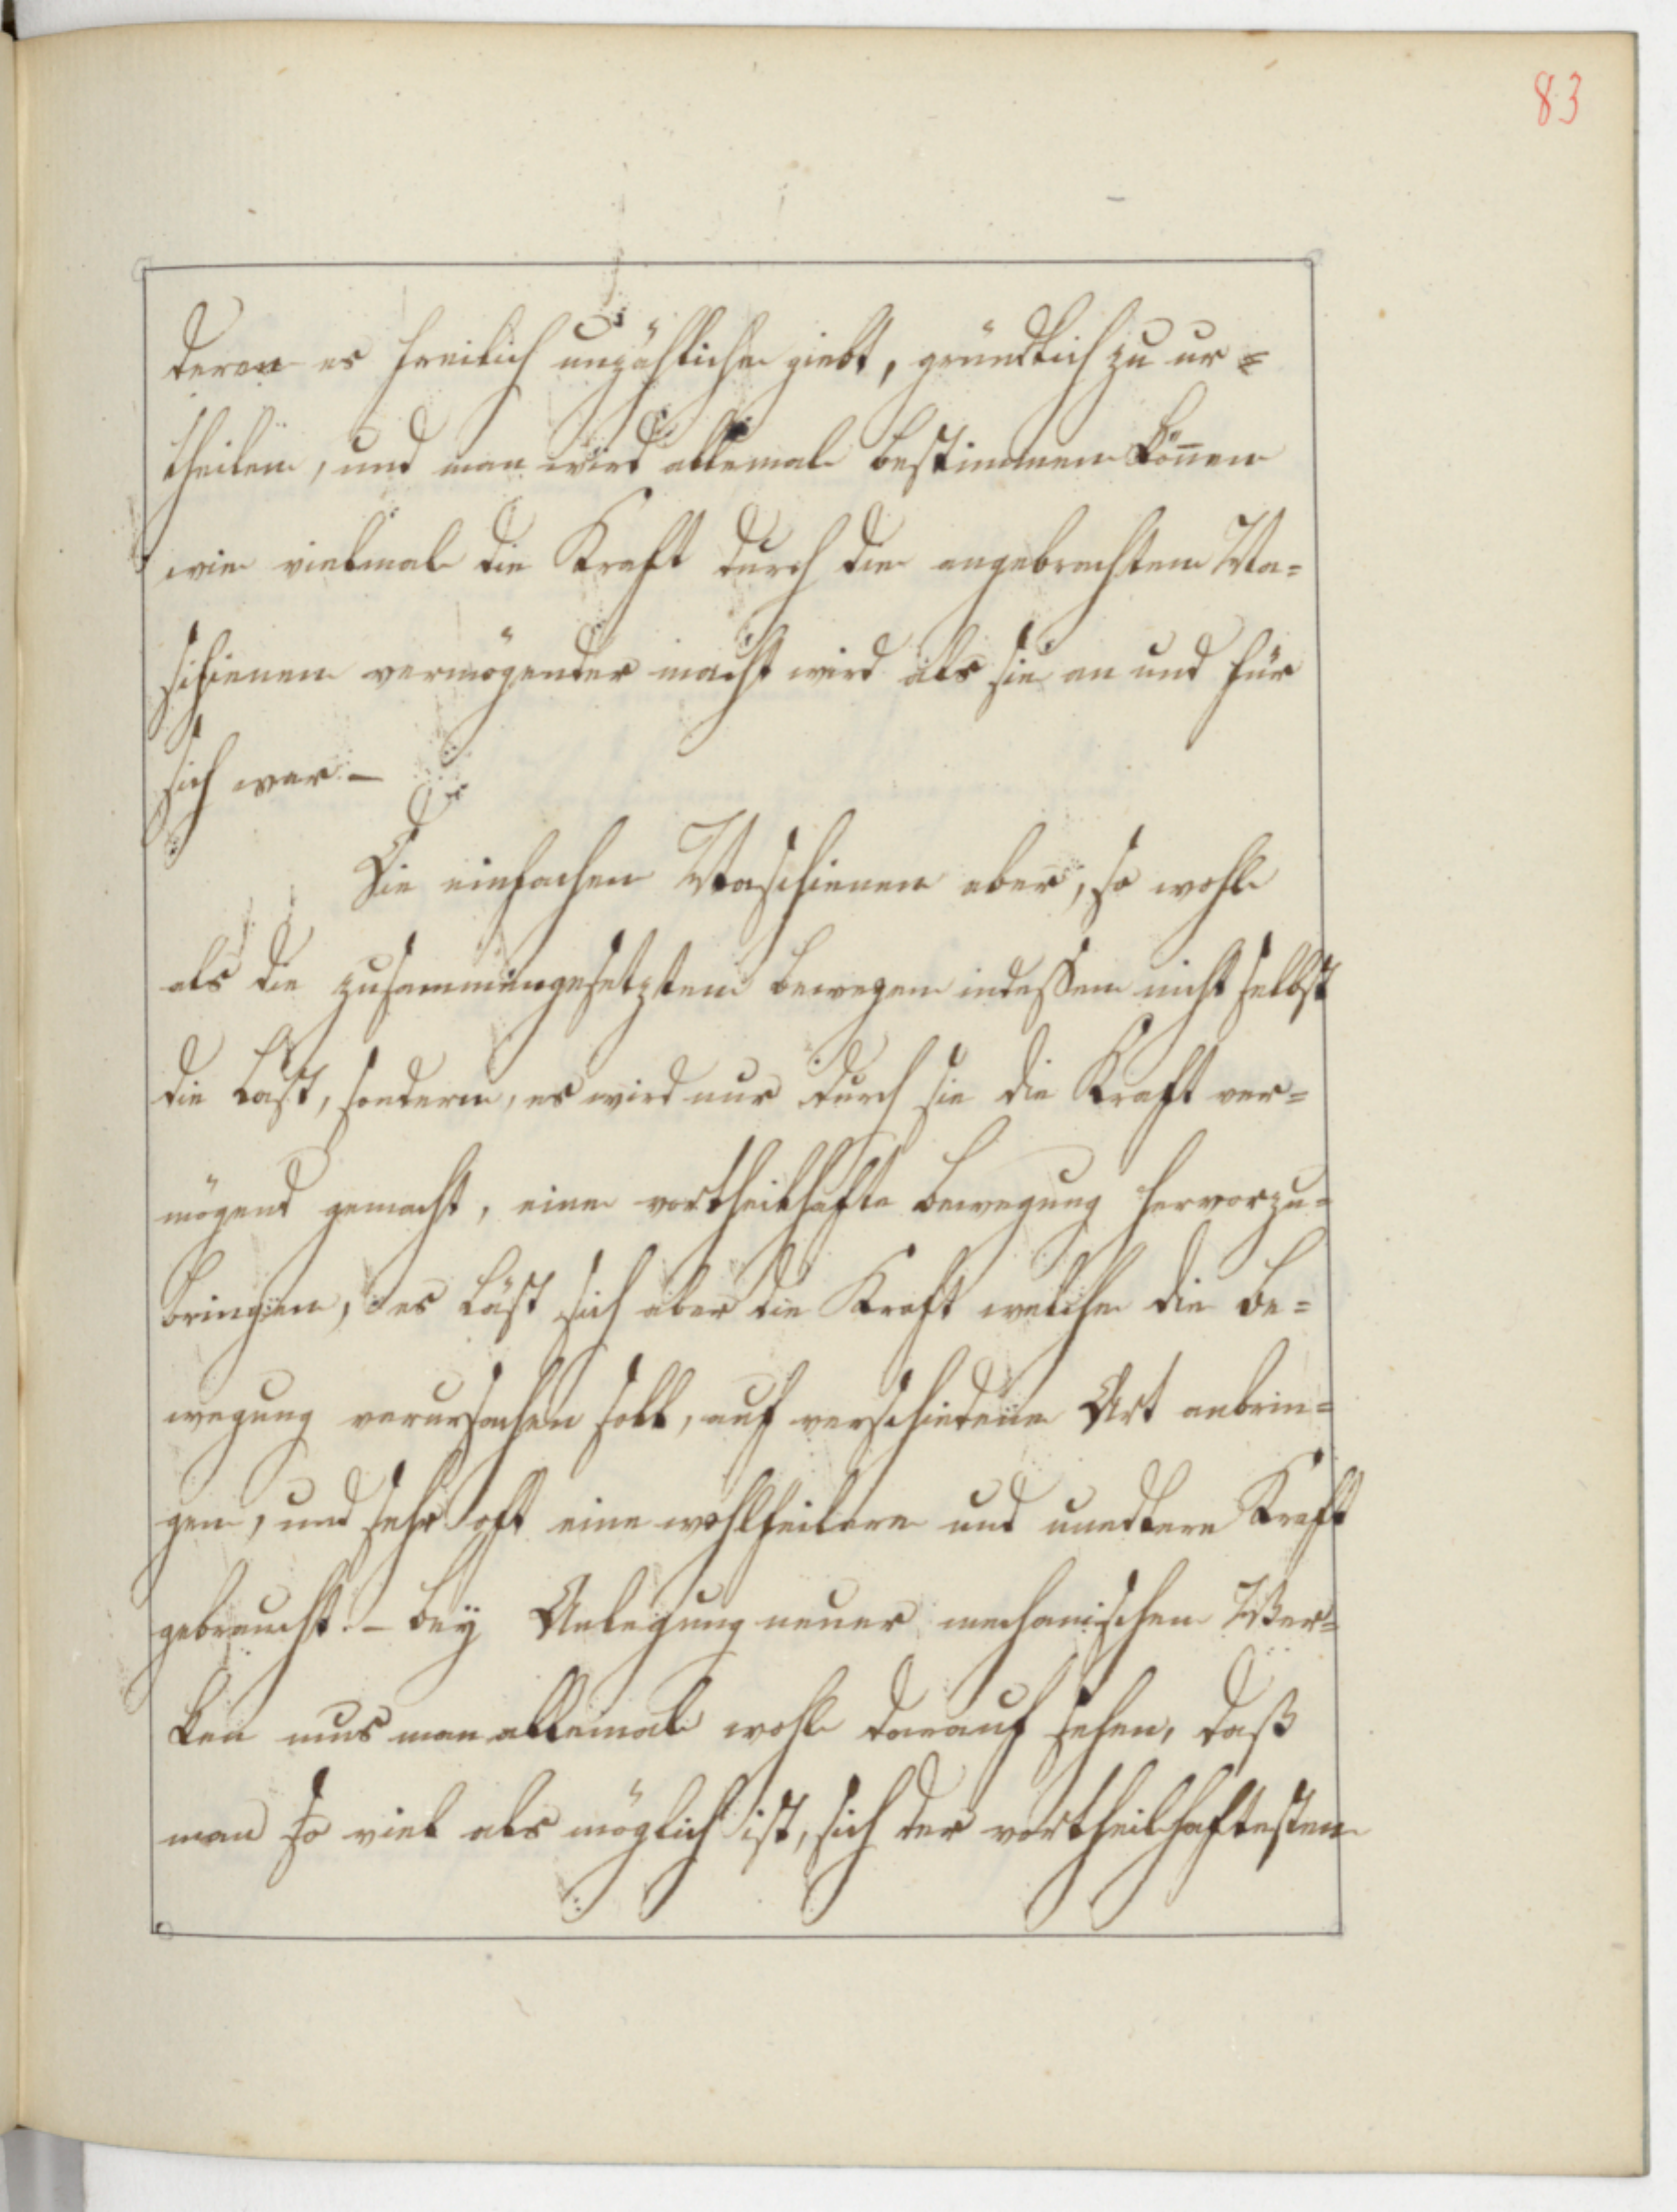 83
deren es freilich unzähliche giebt, gründlich zu ur=
theilen, und man wird allemal bestimmen kön̄en
wie vielmal die Kraft durch die angebrachten Ma=
schienen vermögender macht wird als sie an und für
sich war –
Die einfachen Maschienen aber, so wohl
als die zusammengesetzten bewegen indessen nicht selbst
die Last, sondern, es wird nur durch sie die Kraft ver=
mögend gemacht, eine vortheilhafte Bewegung hervorzu=
bringen, es läst sich aber die Kraft welche die Be=
wegung verursachen soll, auf verschiedene Art anbrin=
gen, und sehr oft eine wohlfeilere und unedlere Kraft
gebraucht. – Bey Anlegung neuer mechanischen Wer=
ken mus man allemal wohl darauf sehen, daß
man so viel als möglich ist, sich der vortheilhaftesten